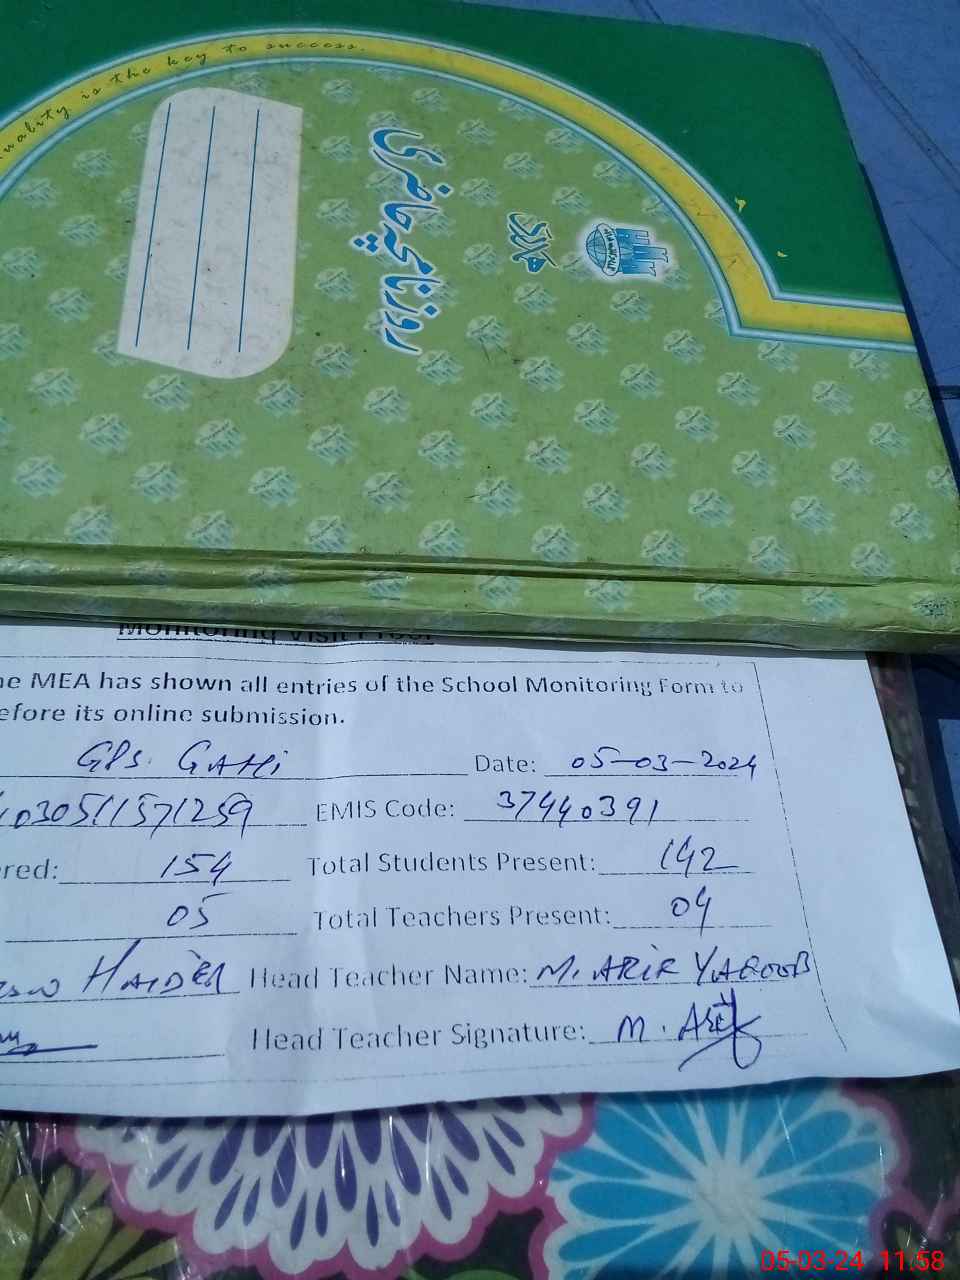 uality is the key to success.
روزنامچہ حاضری
ہماری
Monitoring Visit Proof
he MEA has shown all entries of the School Monitoring Form to
efore its online submission.
GPS. GAHI Date: 05-03-2024
030511571259 EMIS Code: 37440391
red: 154 Total Students Present: 142
05 Total Teachers Present: 04
HAIDER Head Teacher Name: M. ARIF YAQOOB
Head Teacher Signature: M. Arif
05-03-24 11:58